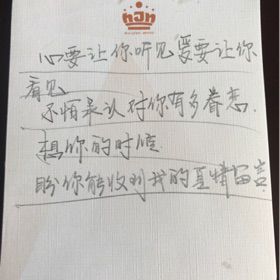 心要让你听见爱要让你
看见
不怕承认对你有多眷恋.
想你的时候
盼你能收到我的真情留言